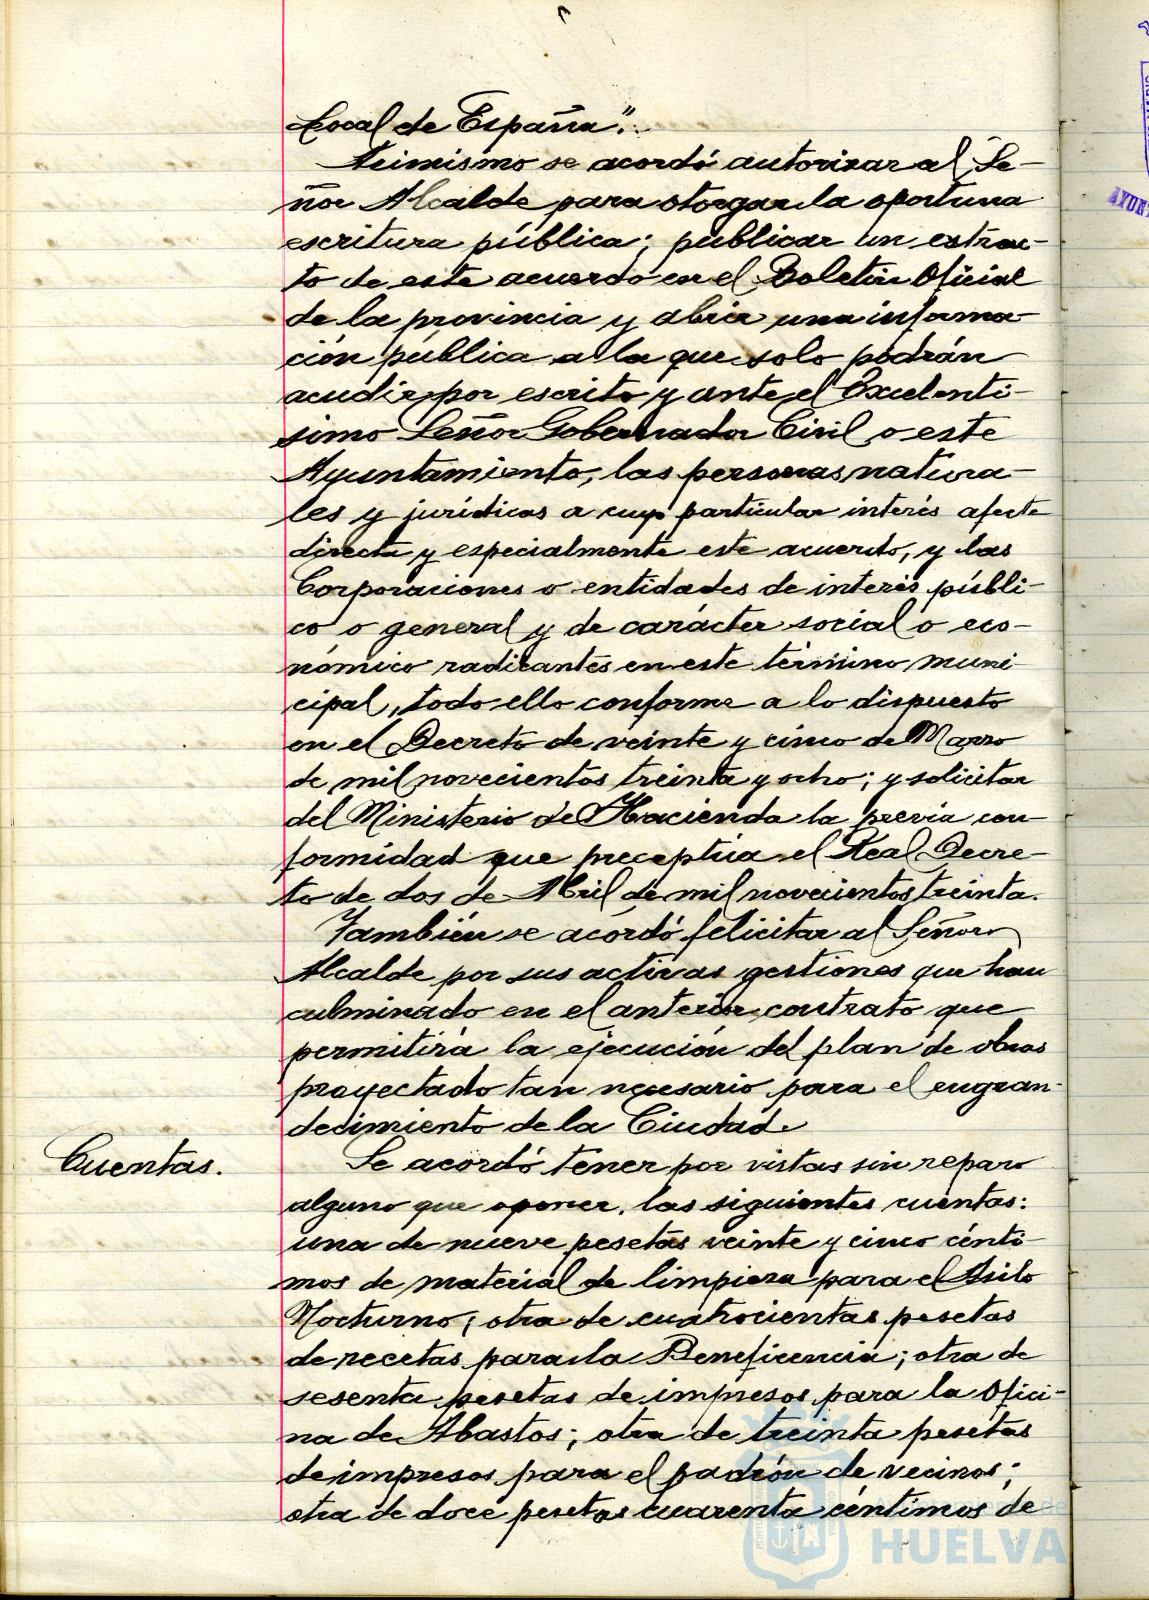 Local de España".
Asimismo se acordó autorizar al Se-
ñor Alcalde para otorgar la oportuna
escritura pública; publicar un extrac-
to de este acuerdo en el Boletín Oficial
de la provincia y abrir una informa-
ción pública a la que solo podrán
acudir por escrito y ante el Excelentí-
simo Señor Gobernador Civil o este
Ayuntamiento, las personas natura-
les y jurídicas a cuyo particular interés afecte
directa y especialmente este acuerdo, y las
Corporaciones o entidades de interés públi-
co o general y de carácter social o eco-
nómico radicantes en este término muni-
cipal, todo ello conforme a lo dispuesto
en el Decreto de veinte y cinco de Marzo
de mil novecientos treinta y ocho; y solicitar
del Ministerio de Hacienda la previa con-
formidad que preceptúa el Real Decre-
to de dos de Abril de mil novecientos treinta.
También se acordó felicitar al Señor
Alcalde por sus activas gestiones que han
culminado en el anterior contrato que
permitirá la ejecución del plan de obras
proyectado tan necesario para el engran-
decimiento de la Ciudad.
Cuentas.
Se acordó tener por vistas sin reparo
alguno que oponer, las siguientes cuentas:
una de nueve pesetas veinte y cinco cénti-
mos de material de limpieza para el Asilo
Nocturno; otra de cuatrocientas pesetas
de recetas para la Beneficencia; otra de
sesenta pesetas de impresos para la Ofici-
na de Abastos; otra de treinta pesetas
de impresos para el padrón de vecinos;
otra de doce pesetas cuarenta céntimos de
HUELVA